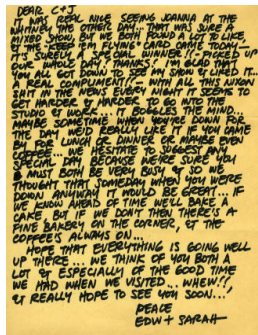 DEAR C+J
IT WAS REAL NICE SEEING JOANNA AT THE
WHITNEY THE OTHER DAY... THAT WAS SURE A
MIXED SHOW, BUT WE BOTH FOUND A LOT TO LIKE,
& THE "KEEP 'EM FLYING" CARD CAME TODAY—
IT'S SURELY A SPECIAL WINNER!! PICKED UP
OUR WHOLE DAY! THANKS! I'M GLAD THAT
YOU ALL GOT DOWN TO SEE MY SHOW & LIKED IT...
A REAL COMPLIMENT! — WITH ALL THIS NIXON
SHIT IN THE NEWS EVERY NIGHT IT SEEMS TO
GET HARDER & HARDER TO GO INTO THE
STUDIO & WORK... IT BOGGLES THE MIND...
MAYBE SOMETIME WHEN YOU'RE DOWN FOR
THE DAY WE'D REALLY LIKE IT IF YOU CAME
BY FOR LUNCH OR DINNER OR MAYBE FOR
COFFEE... WE HESITATE TO SUGGEST ANY
SPECIAL DAY BECAUSE WE'RE SURE YOU
MUST BOTH BE VERY BUSY & SO WE
THOUGHT THAT SOMEDAY WHEN YOU WERE
DOWN ANYWAY IT WOULD BE GREAT... IF
WE KNOW AHEAD OF TIME WE'LL BAKE A
CAKE BUT IF WE DON'T THEN THERE'S A
FINE BAKERY ON THE CORNER, & THE
COFFEE'S ALWAYS ON...
HOPE THAT EVERYTHING IS GOING WELL
UP THERE... WE THINK OF YOU BOTH A
LOT & ESPECIALLY OF THE GOOD TIME
WE HAD WHEN WE VISITED... WHEW!!,
& REALLY HOPE TO SEE YOU SOON...
PEACE
EDW + SARAH